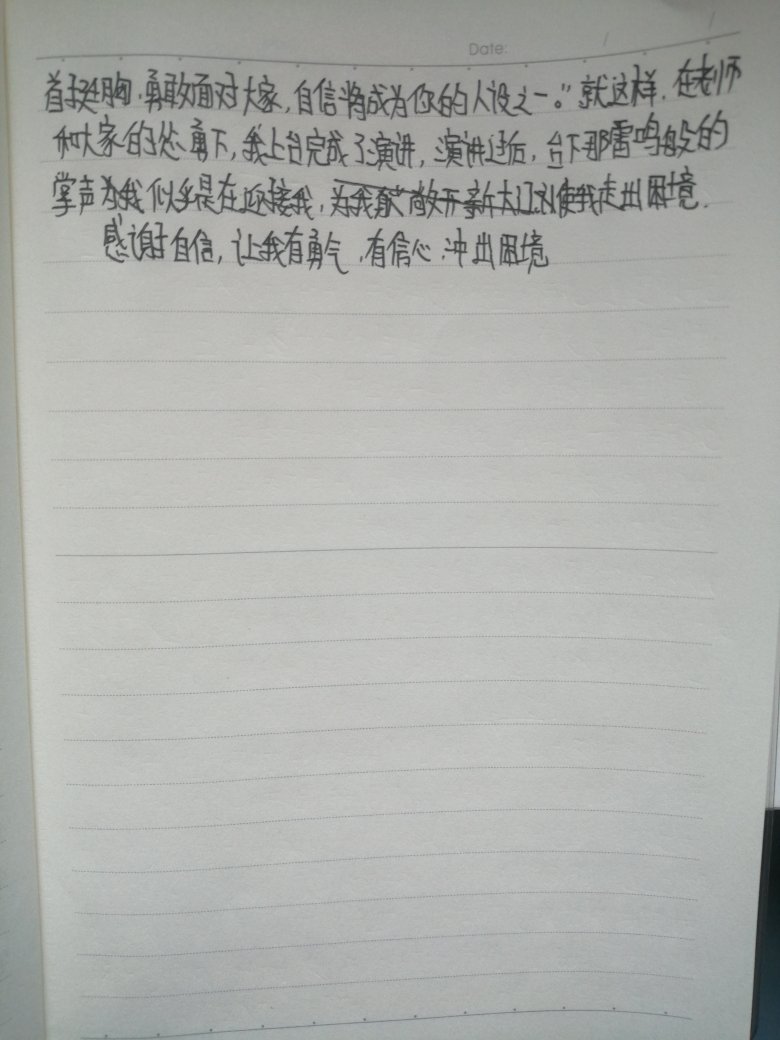 Date:
首挺胸,勇敢面对大家,自信将成为你的人设之一。”就这样,在老师
和大家的怂恿下,我上台完成了演讲,演讲过后,台下那雷鸣般的
掌声为我似乎是在迎接我,为我敞开新大门使我走出困境.
感谢自信,让我有勇气,有信心,冲出困境